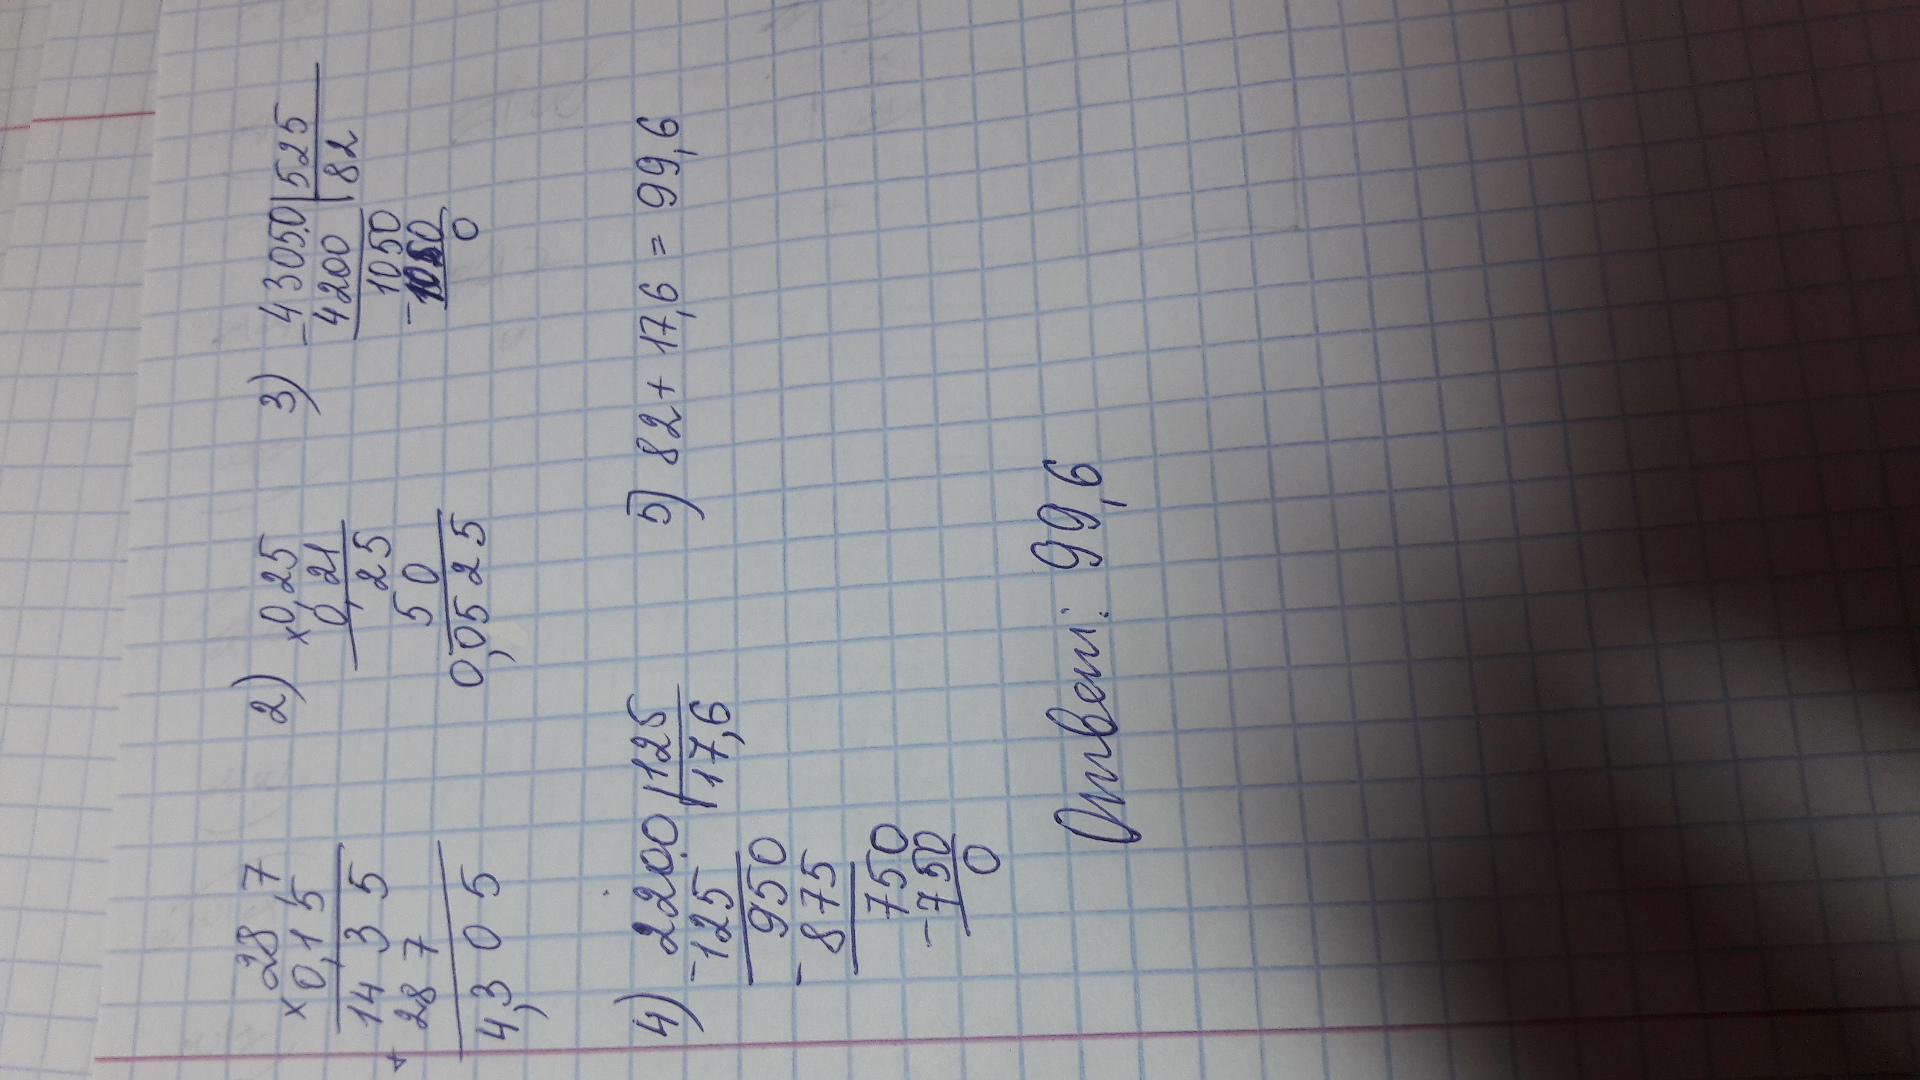 28 7
× 0,15
14 3 5
+ 28 7
4,3 0 5
2) × 0,25
0,21
25
5 0
0,0525
3) - 43050 | 525
4200 | 82
1050
- 1050
0
4) - 2200 | 125
125 | 17,6
950
- 875
750
- 750
0
5) 82 + 17,6 = 99,6
Ответ: 99,6